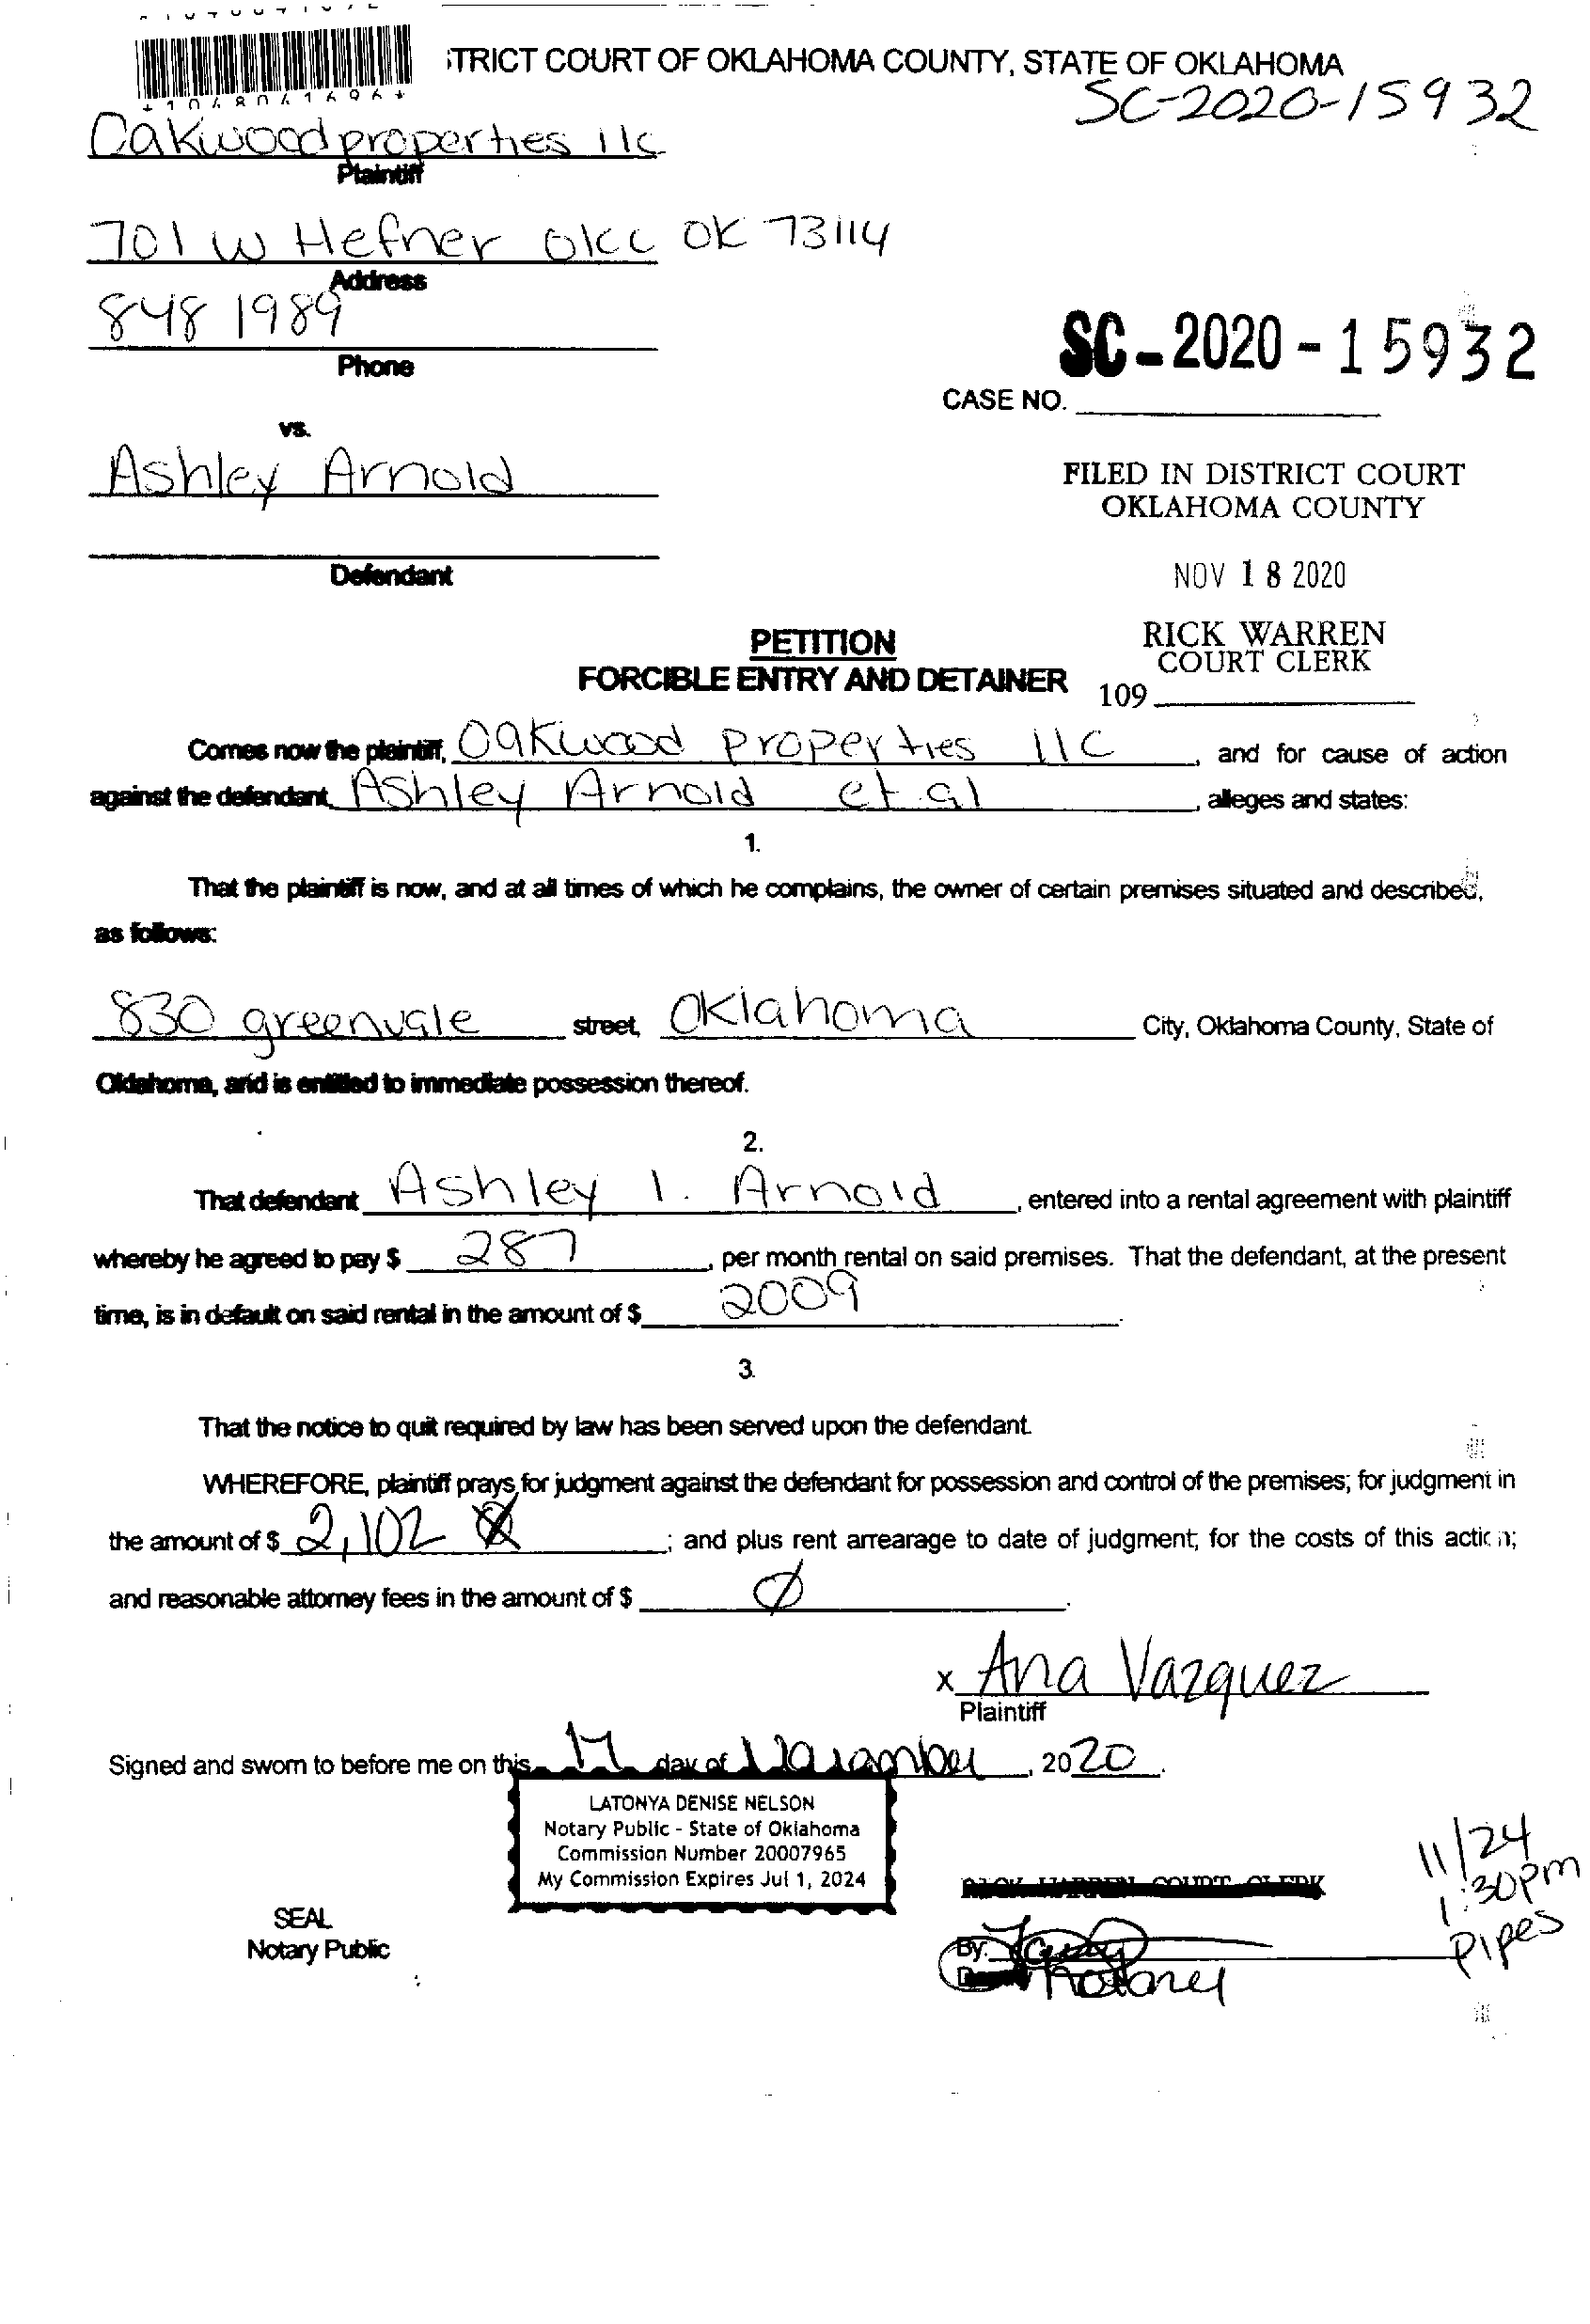 TRICT COURT OF OKLAHOMA COUNTY, STATE OF OKLAHOMA
SC-2020-15932
Oakwood properties llc
Plaintiff
701 W Hefner OKC OK 73114
Address
848 1989
Phone
SC-2020-15932
CASE NO.
vs.
Ashley Arnold
FILED IN DISTRICT COURT
OKLAHOMA COUNTY
Defendant
NOV 18 2020
PETITION
RICK WARREN
COURT CLERK
FORCIBLE ENTRY AND DETAINER
109
Comes now the plaintiff, Oakwood properties llc, and for cause of action
against the defendant, Ashley Arnold et al, alleges and states:
1.
That the plaintiff is now, and at all times of which he complains, the owner of certain premises situated and described,
as follows:
830 greenvale street, Oklahoma City, Oklahoma County, State of
Oklahoma, and is entitled to immediate possession thereof.
2.
That defendant Ashley I. Arnold, entered into a rental agreement with plaintiff
whereby he agreed to pay $ 287, per month rental on said premises. That the defendant, at the present
time, is in default on said rental in the amount of $ 2009.
3.
That the notice to quit required by law has been served upon the defendant.
WHEREFORE, plaintiff prays for judgment against the defendant for possession and control of the premises; for judgment in
the amount of $ 2,102; and plus rent arrearage to date of judgment; for the costs of this action;
and reasonable attorney fees in the amount of $ Ø.
x Ana Vazquez
Plaintiff
Signed and sworn to before me on this 17 day of November, 2020.
LATONYA DENISE NELSON
Notary Public - State of Oklahoma
Commission Number 20007965
My Commission Expires Jul 1, 2024
11/24
1:30pm
Pipes
RICK WARREN COURT CLERK
SEAL
Notary Public
By:
Notary